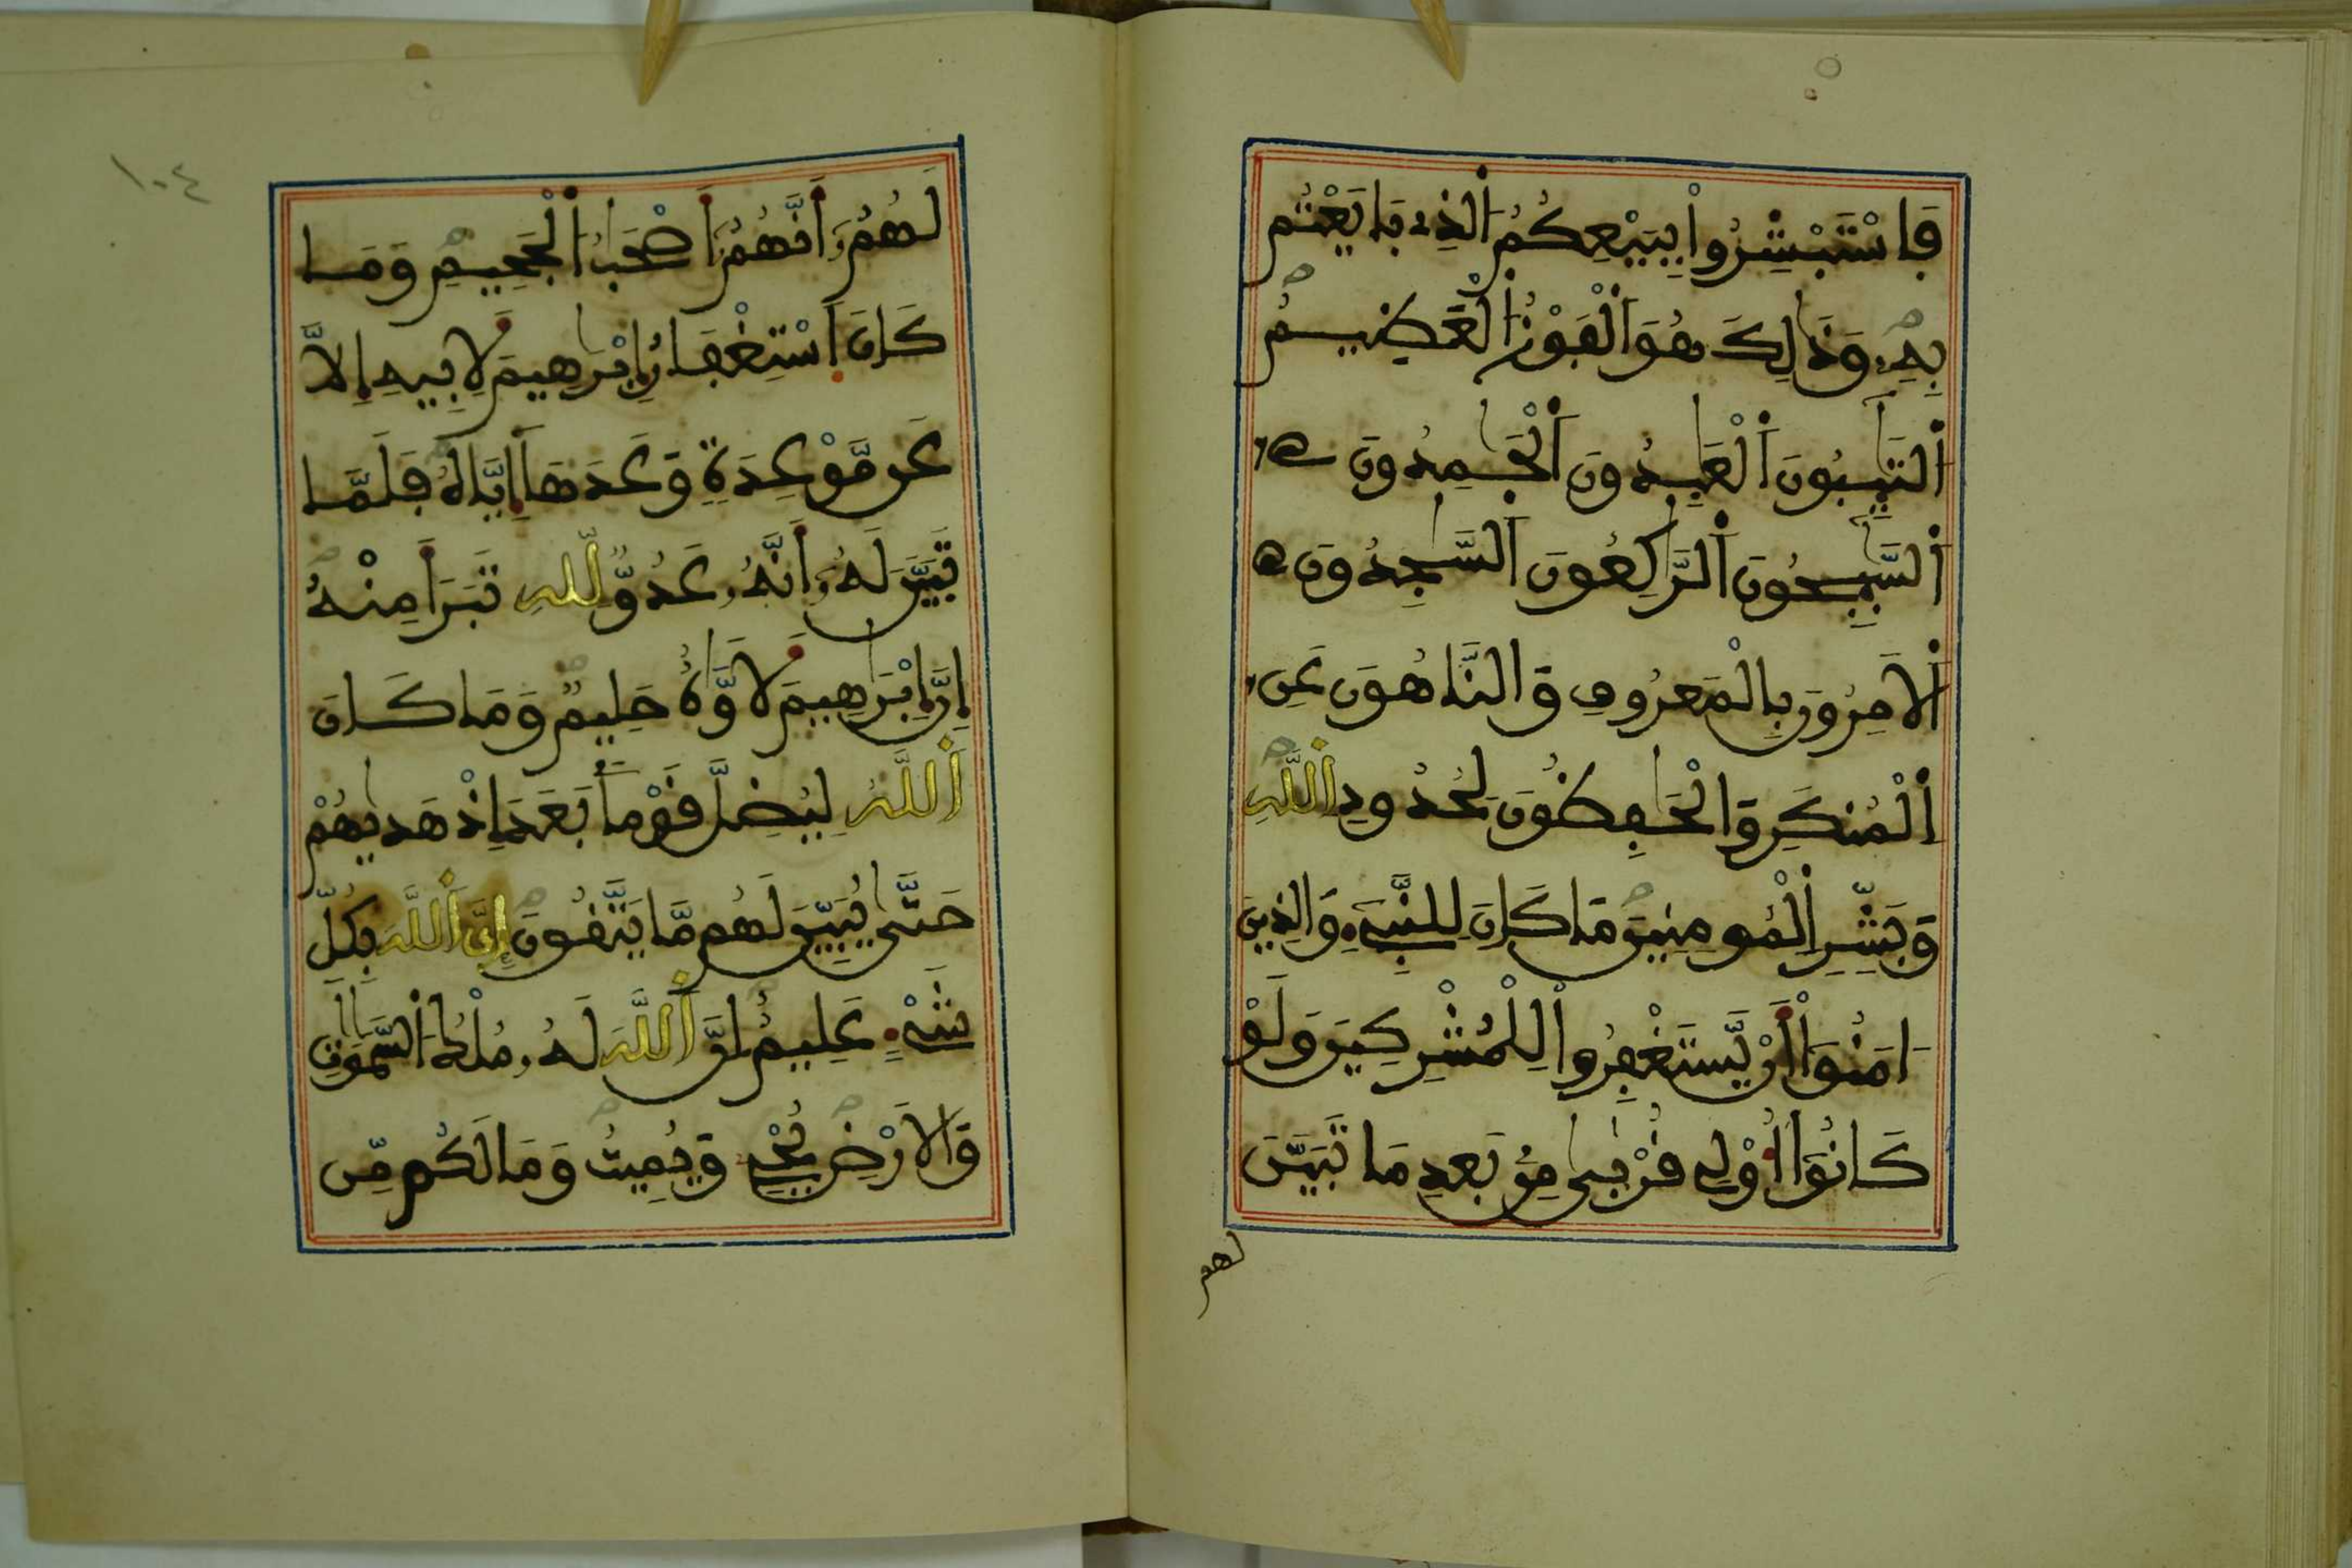 فَاسْتَبْشِرُواْ بِبَيْعِكُمُ اُلذِے بَايَعْتُم
بِهِۦ وَذَٰلِكَ هُوَ اَلْفَوْزُ اُلْعَظِيمُ
اُلتَّٰٓئِبُونَ اَلْعَٰبِدُونَ اَلْحَٰمِدُونَ
اَلسَّٰٓئِحُونَ اَلرَّٰكِعُونَ اَلسَّٰجِدُونَ
اَلَامِرُونَ بِالْمَعْرُوفِ وَالنَّاهُونَ عَنِ
اِلْمُنكَرِ وَالْحَٰفِظُونَ لِحُدُودِ اِللَّهِ
وَبَشِّرِ اِلْمُومِنِينَ مَا كَانَ لِلنَّبِےٓءِ وَالذِينَ
ءَامَنُوٓاْ أَنْ يَّسْتَغْفِرُواْ لِلْمُشْرِكِينَ وَلَوْ
كَانُوٓاْ أُوْلِے قُرْبىٰ مِنۢ بَعْدِ مَا تَبَيَّنَ
لهم
١٠٤
لَهُمُۥٓ أَنَّهُمُۥٓ أَصْحَٰبُ اُلْجَحِيمِ وَمَا
كَانَ اَسْتِغْفَارُ إِبْرَٰهِيمَ لِأَبِيهِ إِلَّا
عَن مَّوْعِدَةٍ وَعَدَهَآ إِيَّاهُ فَلَمَّا
تَبَيَّنَ لَهُۥٓ أَنَّهُۥ عَدُوٌّ لِّلهِ تَبَرَّأَ مِنْهُ
إِنَّ إِبْرَٰهِيمَ لَأَوَّٰهٌ حَلِيمٌ وَمَا كَانَ
اَللَّهُ لِيُضِلَّ قَوْماَۢ بَعْدَ إِذْ هَدٰيهُمْ
حَتَّىٰ يُبَيِّنَ لَهُم مَّا يَتَّقُونَ إِنَّ اَللَّهَ بِكُلِّ
شَےْءٍ عَلِيمٌ إِنَّ اَللَّهَ لَهُۥ مُلْكُ اُلسَّمَٰوَٰتِ
وَالَارْضِ يُحْيِۦ وَيُمِيتُ وَمَا لَكُم مِّن